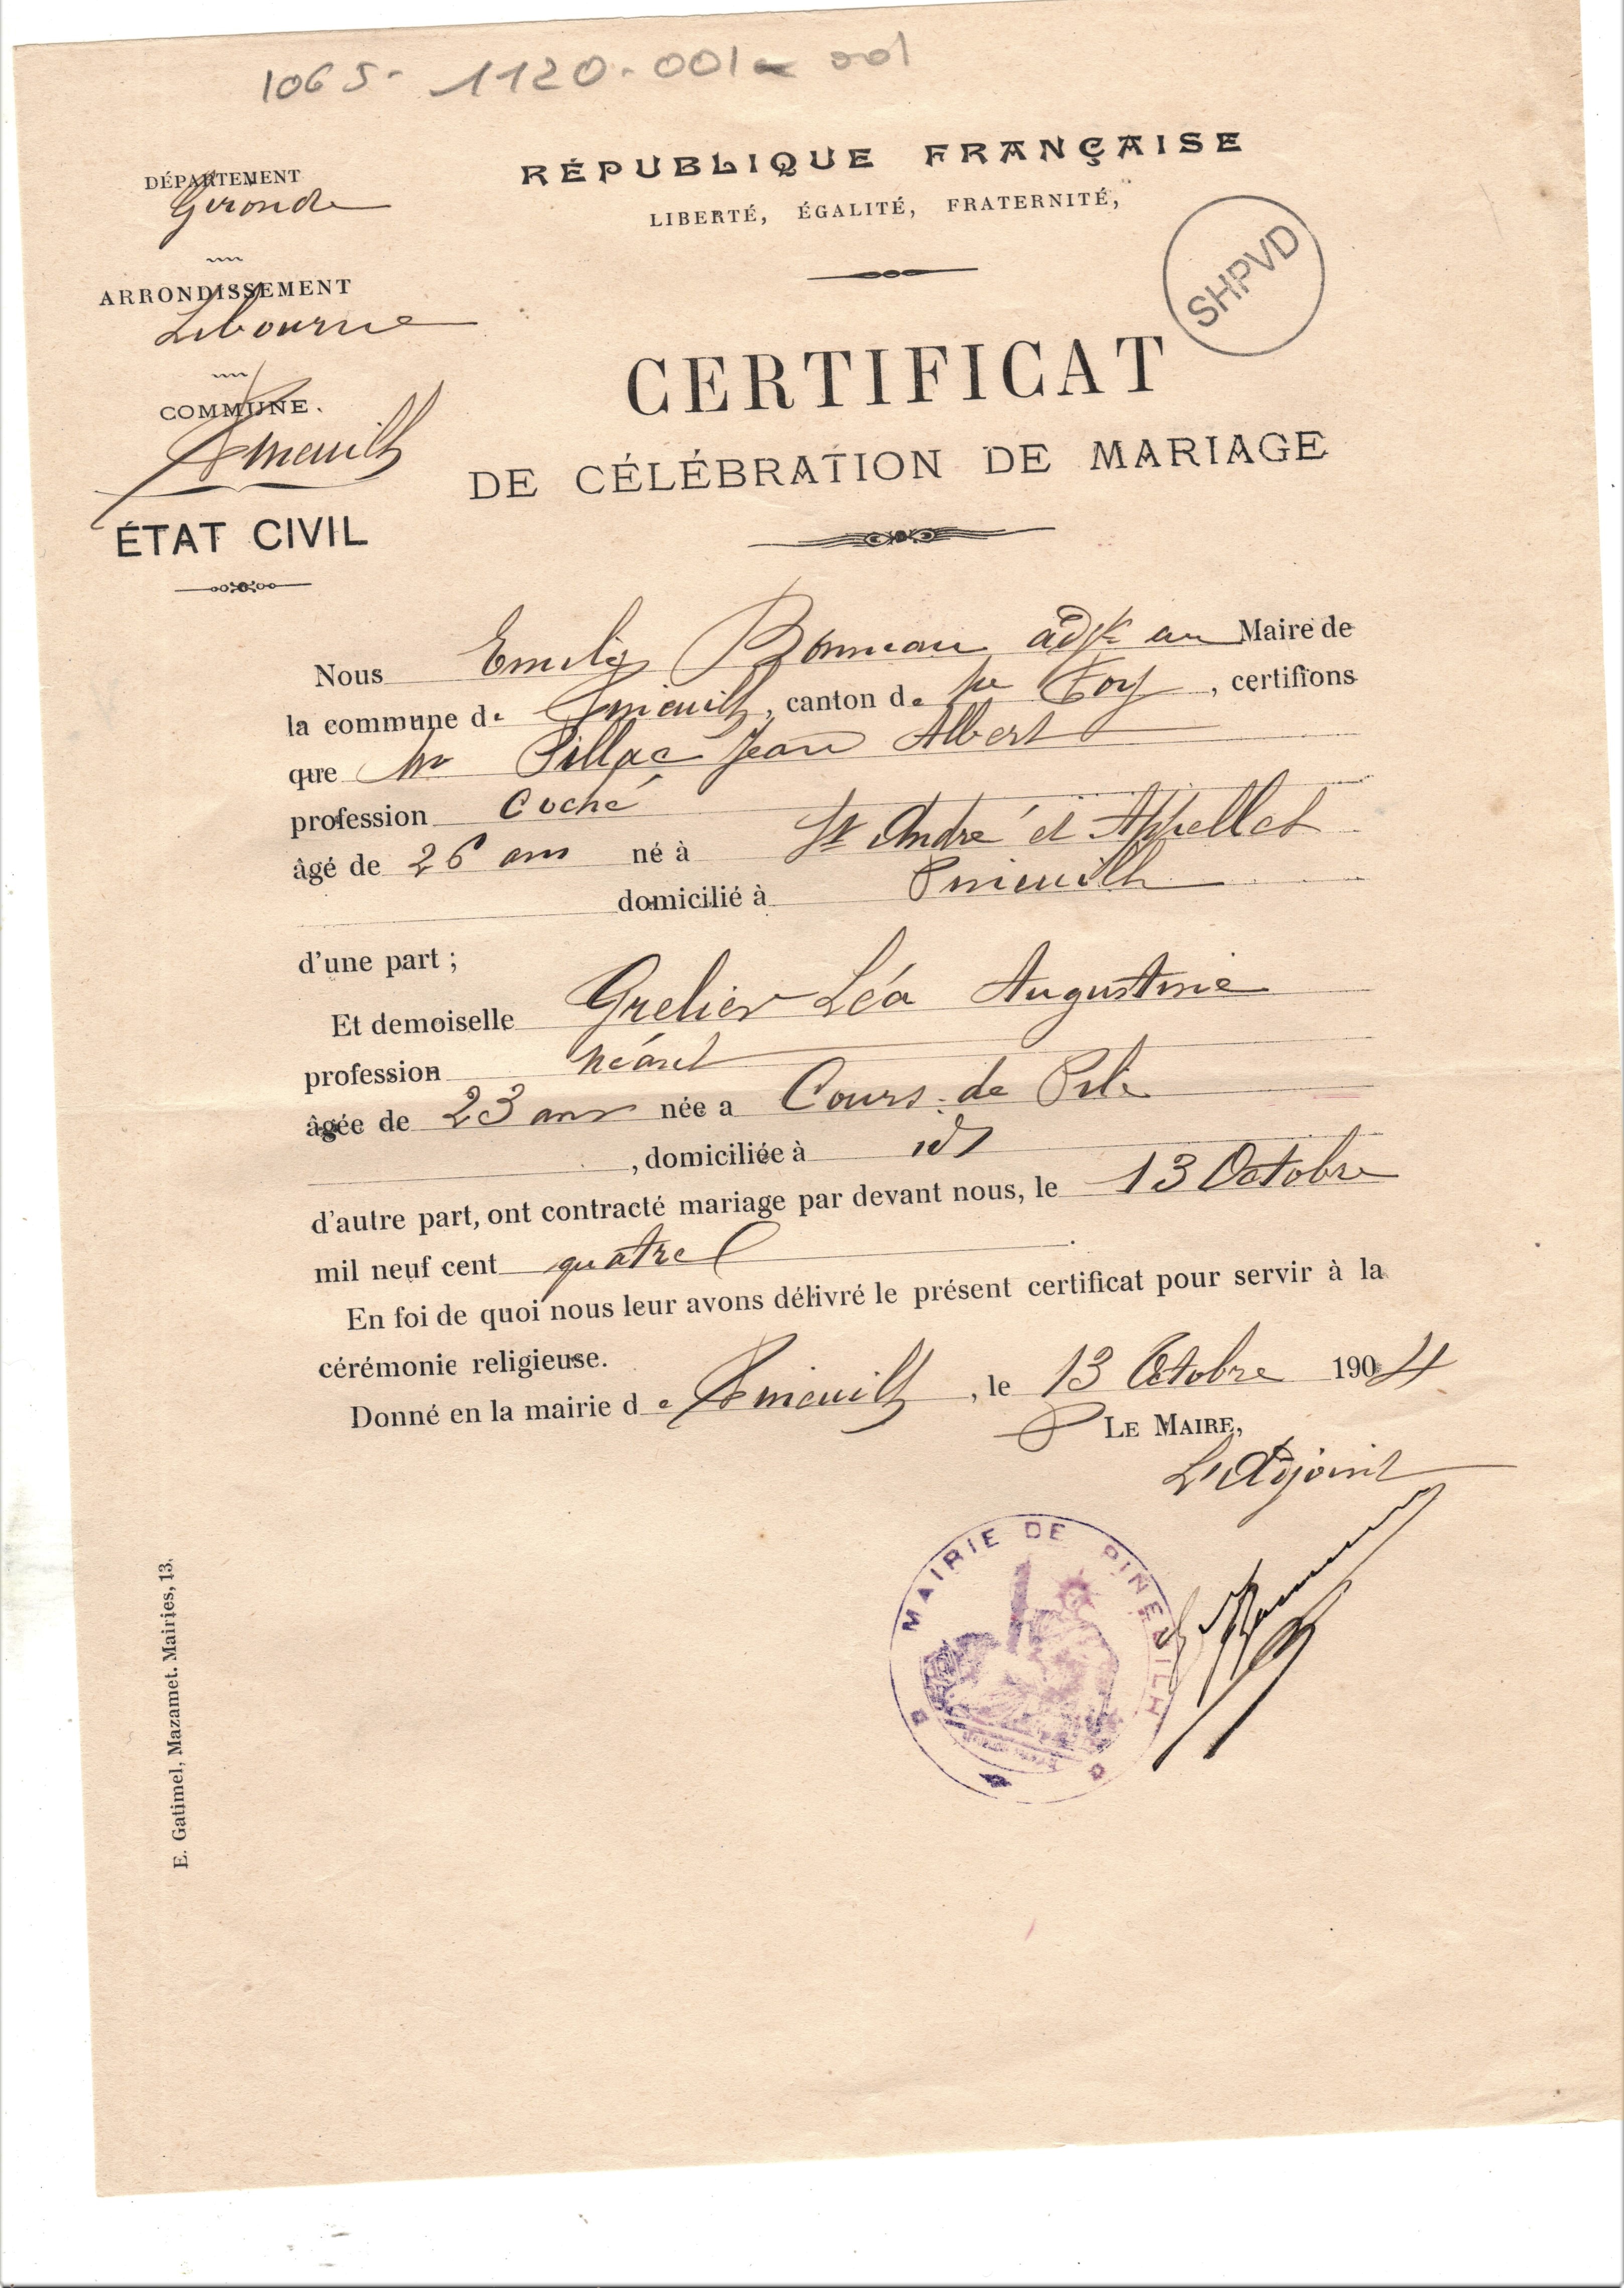 1065-1120-001 001
DÉPARTEMENT
Gironde
ARRONDISSEMENT
Libourne
COMMUNE.
Pineuilh
ÉTAT CIVIL
RÉPUBLIQUE FRANÇAISE
LIBERTÉ, ÉGALITÉ, FRATERNITÉ,
SHPVD
CERTIFICAT
DE CÉLÉBRATION DE MARIAGE
Nous Bonneau adjt au Maire de
la commune de Pineuilh, canton de Ste Foy, certifions
que Mr Pillac Jean Albert
profession Coché
âgé de 26 ans né à St André et Appellet
domicilié à Pineuilh
d'une part ;
Et demoiselle Grelier Léa Augustine
profession néant
âgée de 23 ans née a Cours de Pile
, domiciliée à id
d'autre part, ont contracté mariage par devant nous, le 13 Octobre
mil neuf cent quatre
En foi de quoi nous leur avons délivré le présent certificat pour servir à la
cérémonie religieuse.
Donné en la mairie de Pineuilh, le 13 Octobre 1904
P LE MAIRE,
L'Adjoint
MAIRIE DE PINEUILH
E. Gatimel, Mazamet. Mairies, 13.